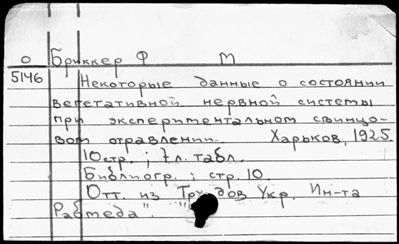 О Бриккер Ф М
5146 Некоторые данные о состоянии
вегетативной нервной системы
при экспериментальном свинцо-
вом отравлении. Харьков, 1925
10стр.; 1л. табл.
Библиогр.: стр. 10.
Отт. из "Трудов Укр. Ин-та
Рабмеда".